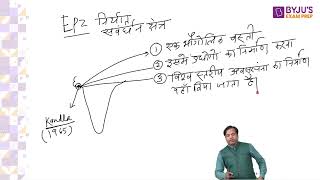 BYJU'S
EXAM PREP
EPZ निर्यात
स्वर्धन क्षेत्र
① एक भौगोलिक बस्ती
② इसमें उद्योगो का निर्माण करना
③ विश्व स्तरीय अवसंरचना का निर्माण
यहाँ किया जाता है।
Kandla
(1965)